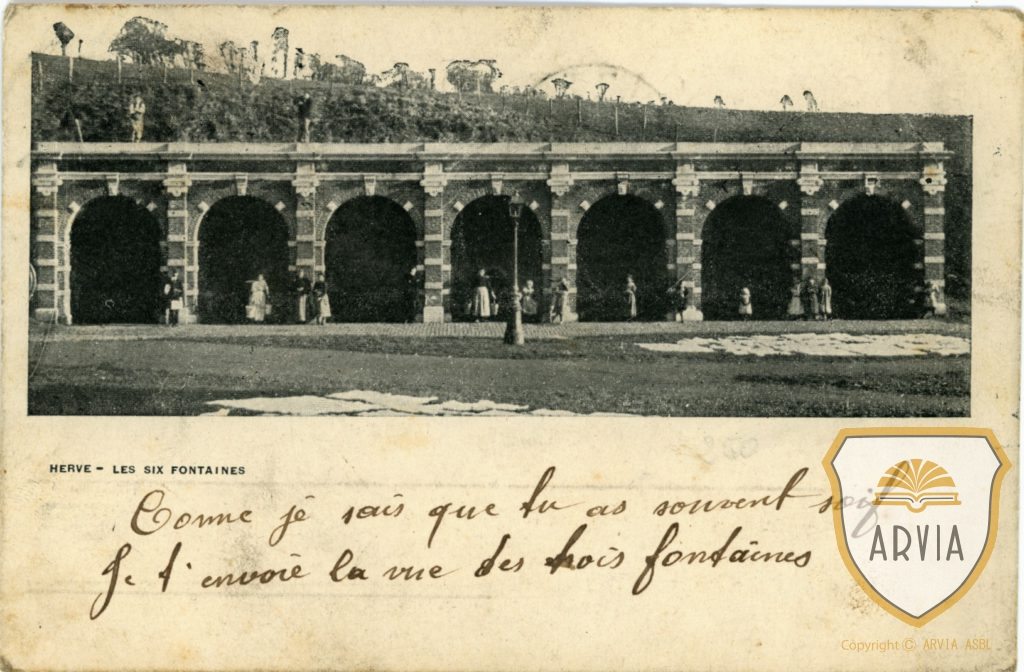 HERVE - LES SIX FONTAINES
Comme je sais que tu as souvent soif
Je t'envoie la vue des trois fontaines
ARVIA
Copyright © ARVIA ASBL